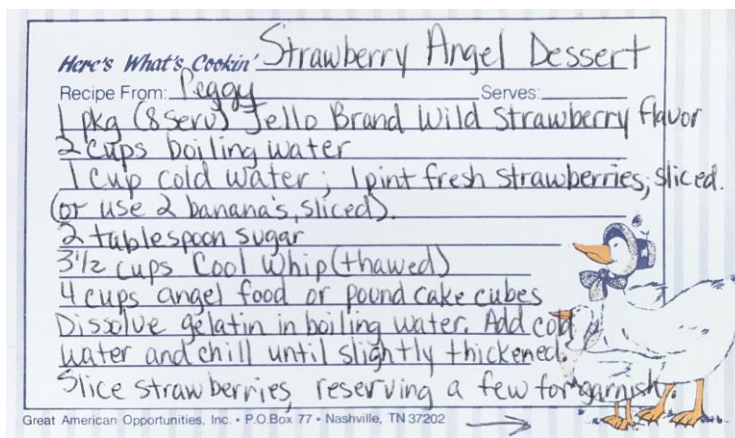 Here's What's Cookin' Strawberry Angel Dessert
Recipe From: Peggy Serves:
1 pkg (8 serv) Jello Brand Wild Strawberry flavor
2 cups boiling water
1 cup cold water; 1 pint fresh strawberries, sliced.
(or use 2 banana's, sliced).
2 tablespoon sugar
3 1/2 cups Cool Whip (thawed)
4 cups angel food or pound cake cubes
Dissolve gelatin in boiling water. Add cold
water and chill until slightly thickened.
Slice strawberries, reserving a few for garnish.
Great American Opportunities, Inc. • P.O.Box 77 • Nashville, TN 37202